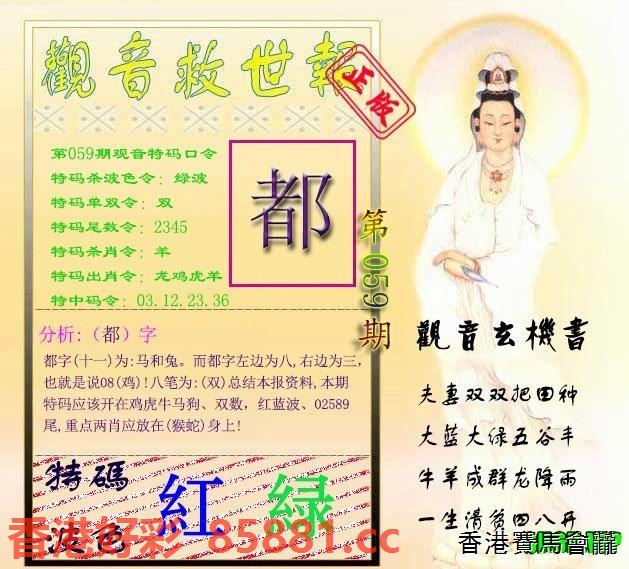 觀音救世報
正版
第059期观音特码口令
特码杀波色令：绿波
特码单双令：双
特码尾数令：2345
特码杀肖令：羊
特码出肖令：龙鸡虎羊
特中码令：03.12.23.36
都
第059期
分析:（都）字
都字(十一)为:马和兔。而都字左边为八,右边为三,
也就是说08(鸡)!八笔为:(双)总结本报资料,本期
特码应该开在鸡虎牛马狗、双数，红蓝波、02589
尾,重点两肖应放在(猴蛇)身上!
特碼
紅 綠
波色
香港好彩 85881.cc
觀音玄機書
夫妻双双把田种
大蓝大绿五谷丰
牛羊成群龙降雨
一生清贫四八开
香港賽馬會